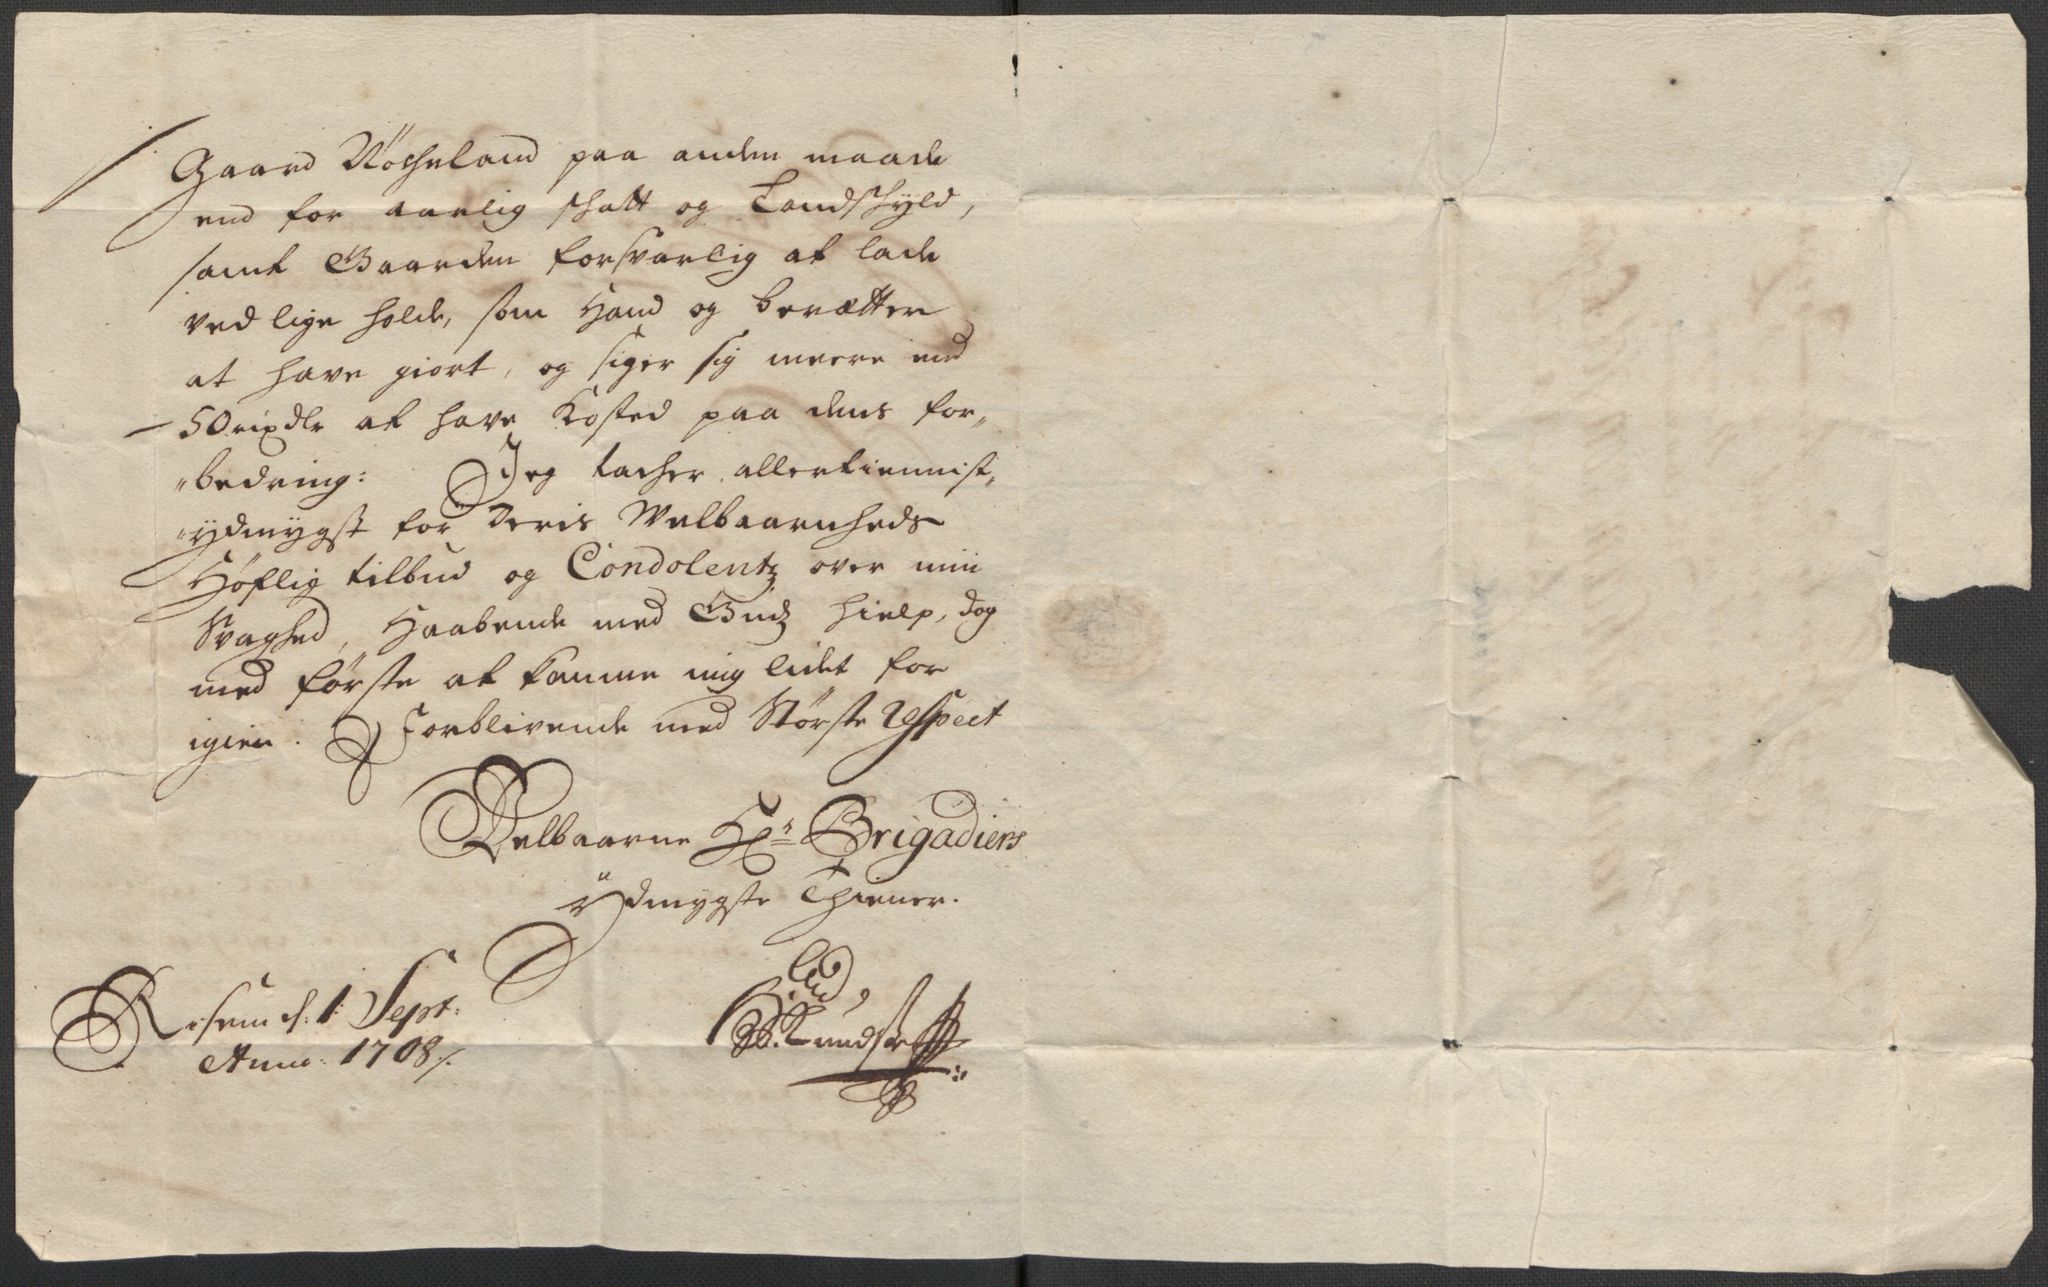 Gaard Røsheland paa anden maade
end for aarlig skatt og Landskyld,
samt Gaarden forsvarlig at lade
ved lige holde, som Hand og berætter
at have giort, og siger sig meere end
50 rixdlr at have Kosted paa dens for„
„bedring: Jeg tacher allertiennist„
„ydmygst for Deris Welbaarnheds
Høflig tilbud og Condolentz over min
Svaghed, Haabende med Gudz hielp, dog
med første at komme mig lidet for
igien. Forblivende med Største respect
Velbaarne Hr. Brigadiers
ÿdmygste Thiener.
d: 1: Sept:
Anno: 1708/.